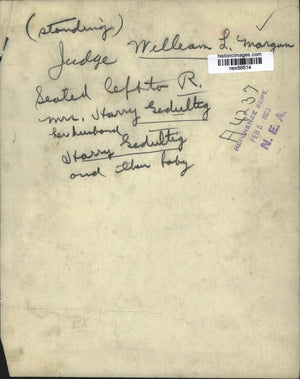 (standing)
Judge William L. Morgan
historicimages.com
nex88614
Seated left to R.
Mrs. Harry Gedultig
her husband
Harry Gedultig
and their baby
A4237
REFERENCE DEPT.
FEB 5 1923
N.E.A.